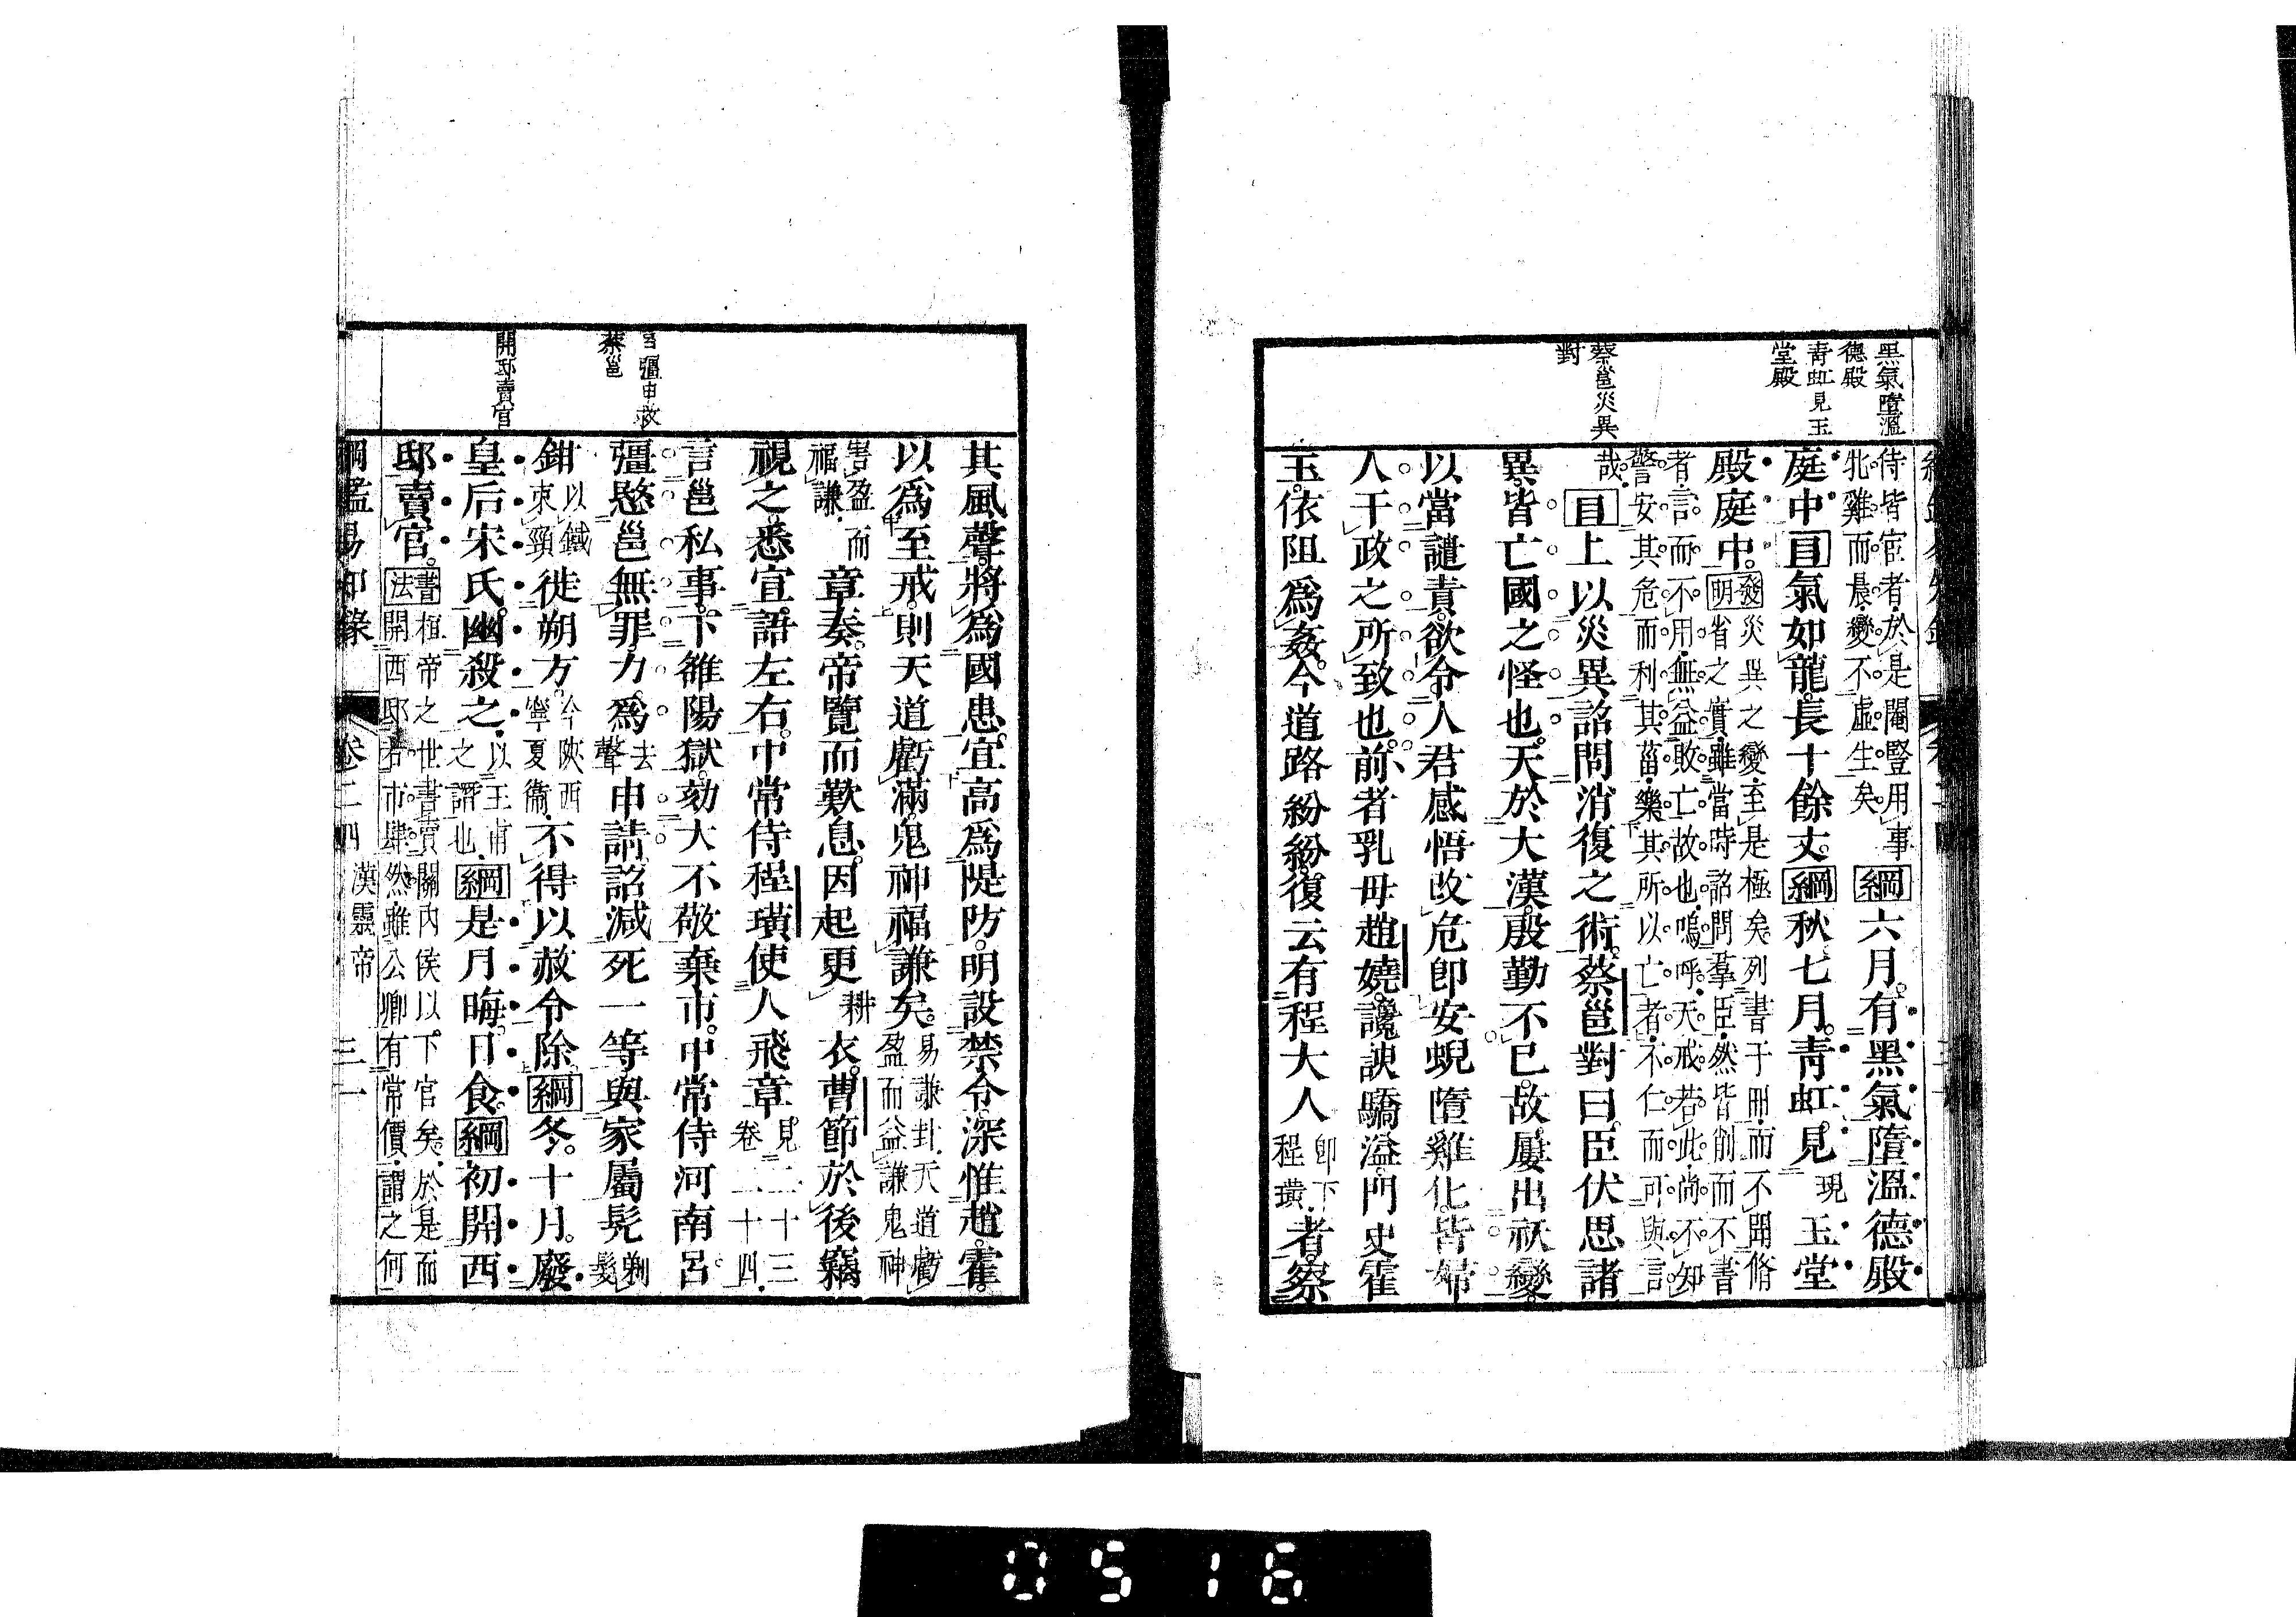 黑氣墮溫
德殿
青虹見玉
堂殿
蔡邕災異
對
侍皆宦者於是閹豎用事
牝雞而晨變不虛生矣
綱六月有黑氣墮溫德殿
庭中目氣如龍長十餘丈綱秋七月靑虹見現玉堂
殿庭中
發明災異之變至是極矣列書于冊而不聞脩
省之實雖當時詔問羣臣然皆削而不書
者言而不用無益敗亡故也嗚呼天戒若此尚不知
警安其危而利其菑樂其所以亡者不仁而可與言
哉
目上以災異詔問消復之術蔡邕對曰臣伏思諸
異皆亡國之怪也天於大漢殷勤不已故屢出祅變
以當譴責欲令人君感悟改危卽安蜺墮雞化皆婦
人干政之所致也前者乳母趙嬈讒諛驕溢門史霍
玉依阻爲姦今道路紛紛復云有程大人
卽下
程璜
者察
其風聲將爲國患宜高爲隄防明設禁令深惟趙霍
以爲至戒則天道虧滿鬼神福謙矣
易謙卦天道虧
盈而益謙鬼神
害盈而
福謙
章奏帝覽而歎息因起更耕衣曹節於後竊
視之悉宣語左右中常侍程璜使人飛章
見二十三
卷二十四
言邕私事下雒陽獄劾大不敬棄市中常侍河南呂
彊愍邕無罪力爲去聲申請詔減死一等與家屬髡
剃
髮
鉗
以鐵
束頸
徙朔方
今陝西
寧夏衞
不得以赦令除綱冬十月廢
皇后宋氏幽殺之
以王甫
之譖也
綱是月晦日食綱初開西
邸賣官
書法桓帝之世書賣關內侯以下官矣於是而
開西邸若市肆然雖公卿有常價謂之何
言彊申救
蔡邕
開邸賣官
綱鑑易知錄 卷二四 漢靈帝 三一
0516